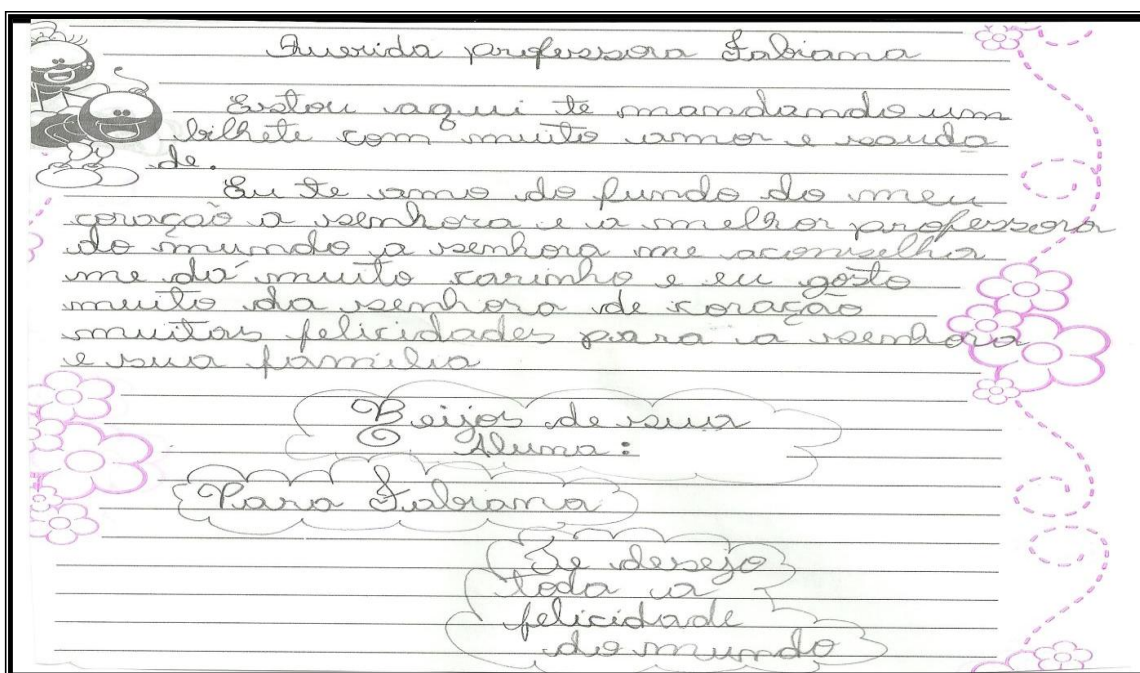 Querida professora Fabiana
Estou aqui te mandando um
bilhete com muito amor e sauda
de.
Eu te amo do fundo do meu
coração a senhora e a melhor professora
do mundo a senhora me aconselha
me dá muito carinho e eu gosto
muito da senhora de coração
muitas felicidades para a senhora
e sua família
Beijos de sua
Aluna:
Para Fabiana
Te desejo
toda a
felicidade
do mundo